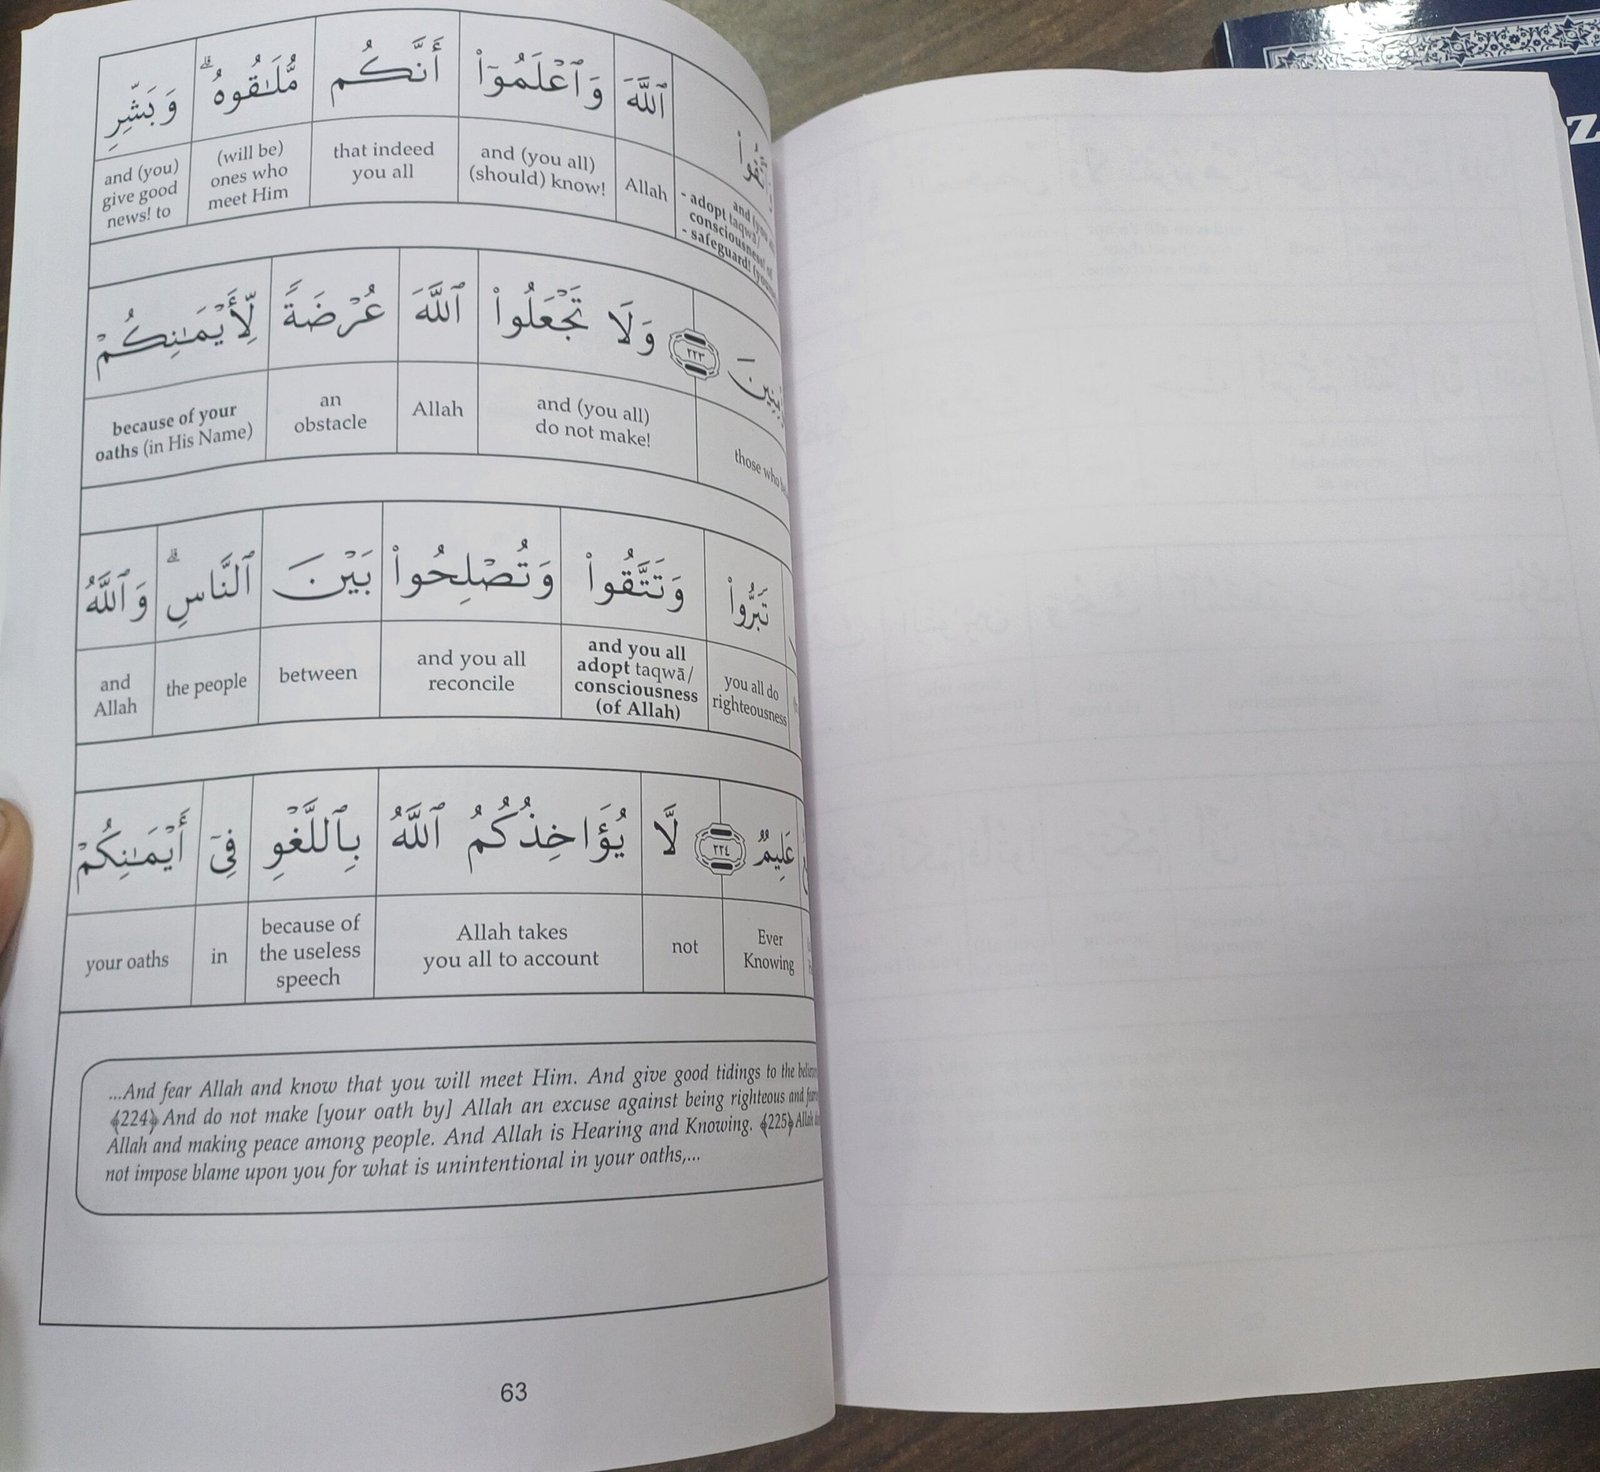 وَٱتَّقُوا۟ ٱللَّهَ وَٱعۡلَمُوٓا۟ أَنَّكُم مُّلَـٰقُوهُۗ وَبَشِّرِ
and (you
- adopt taqwā/
consciousness! of
- safeguard!
Allah
and (you all)
(should) know!
that indeed
you all
(will be)
ones who
meet Him
and (you)
give good
news! to
٢٢٣ وَلَا تَجۡعَلُوا۟ ٱللَّهَ عُرۡضَةً لِّأَيۡمَـٰنِكُمۡ
those who
and (you all)
do not make!
Allah
an
obstacle
because of your
oaths (in His Name)
تَبَرُّوا۟ وَتَتَّقُوا۟ وَتُصۡلِحُوا۟ بَيۡنَ ٱلنَّاسِۗ وَٱللَّهُ
you all do
righteousness
and you all
adopt taqwā/
consciousness
(of Allah)
and you all
reconcile
between
the people
and
Allah
عَلِيمٌ ٢٢٤ لَّا يُؤَاخِذُكُمُ ٱللَّهُ بِٱللَّغۡوِ فِىٓ أَيۡمَـٰنِكُمۡ
Ever
Knowing
not
Allah takes
you all to account
because of
the useless
speech
in
your oaths
...And fear Allah and know that you will meet Him. And give good tidings to the
﴾224﴿ And do not make [your oath by] Allah an excuse against being righteous and
Allah and making peace among people. And Allah is Hearing and Knowing. ﴾225﴿ Allah
not impose blame upon you for what is unintentional in your oaths,...
63
z